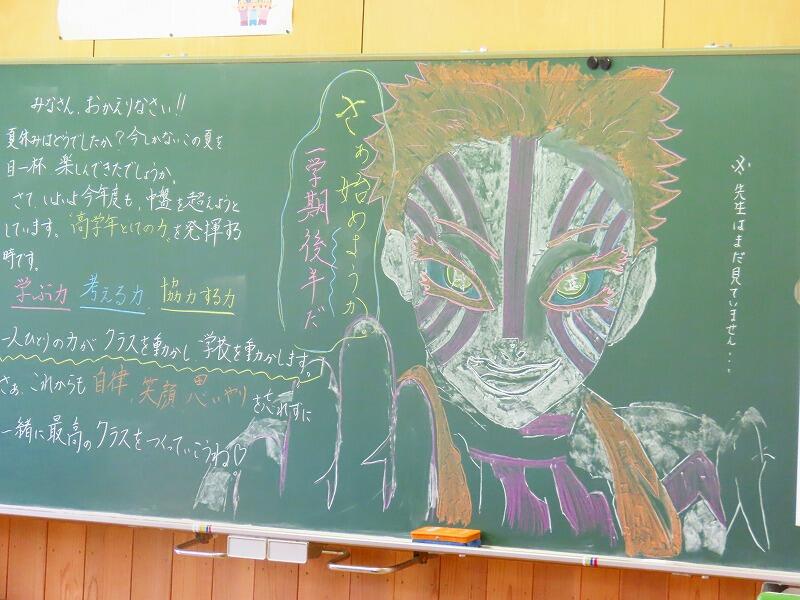 みなさん、おかえりなさい!!
夏休みはどうでしたか?今しかないこの夏を
目一杯 楽しんできたでしょうか。
さて、いよいよ今年度も、中盤を超えようと
しています。"高学年としての力"を発揮する
時です。
学ぶ力 考える力 協力する力
一人ひとりの力が クラスを動かし、学校を動かします。
さぁ、これからも 自律、笑顔、思いやり を忘れずに
一緒に最高のクラスをつくっていこうね♡。
さぁ始めようか
一学期後半だ
※先生はまだ見ていません...